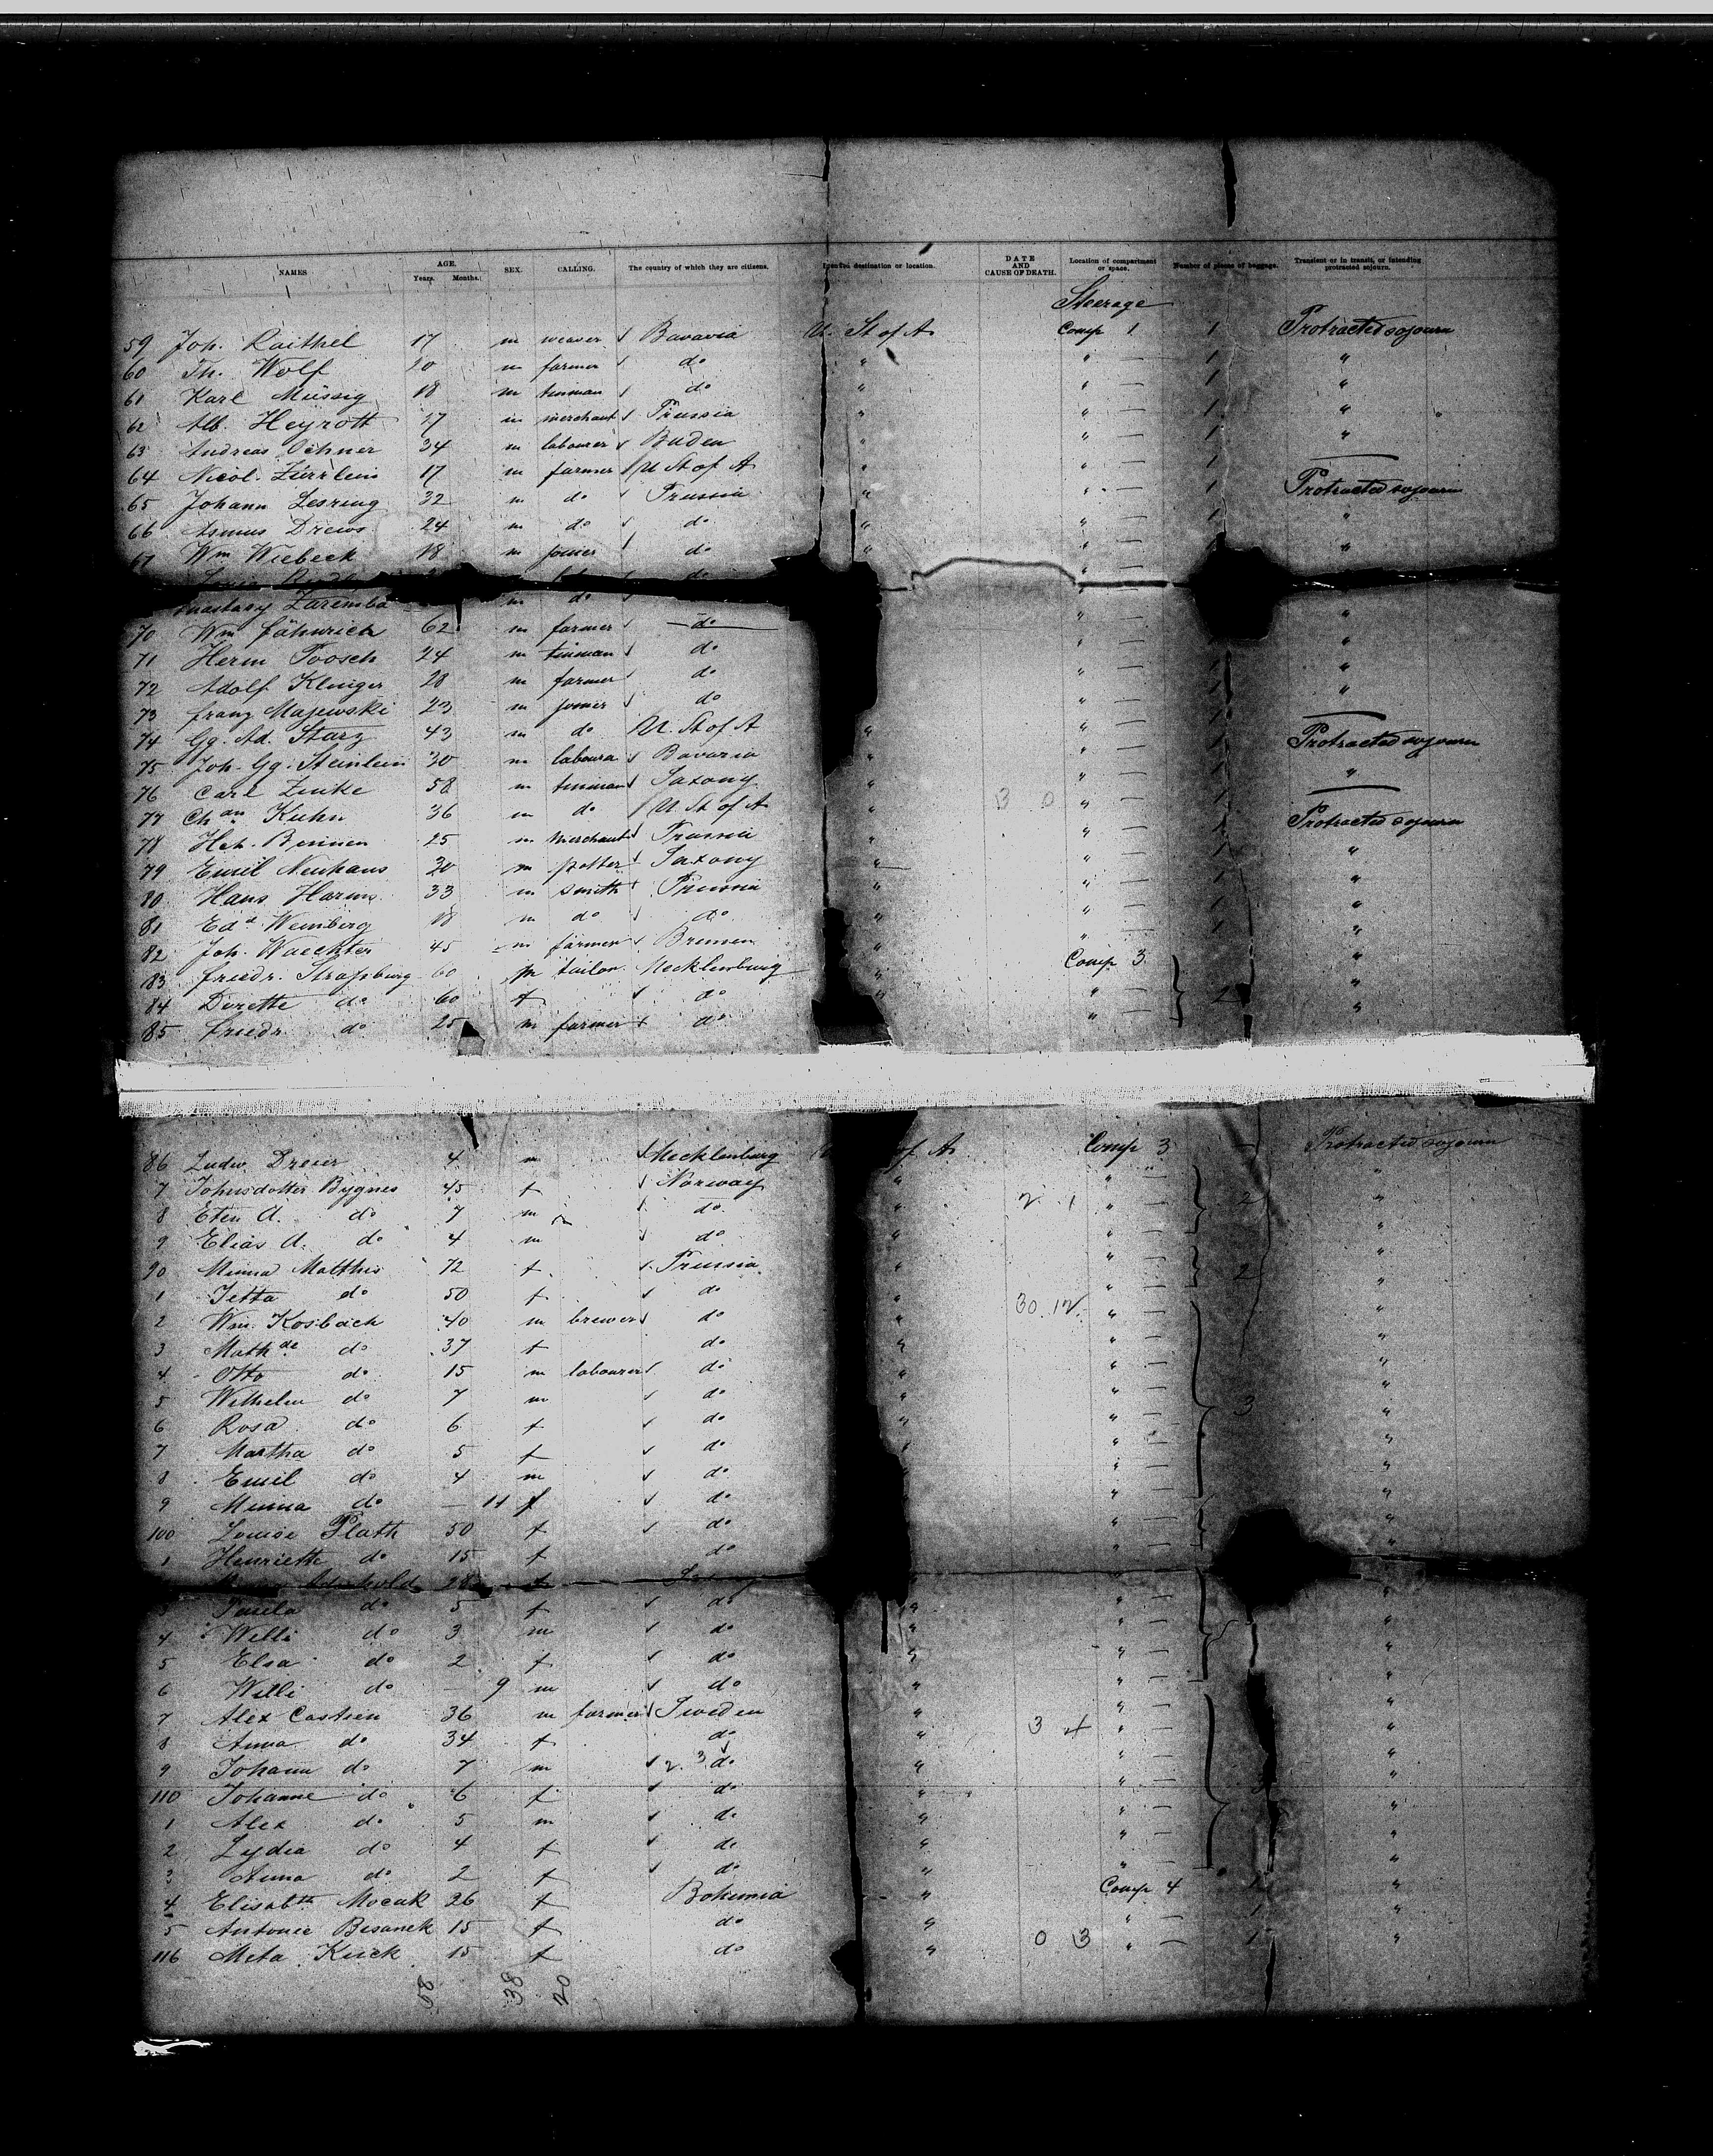 NAMES AGE. Years. Months. SEX. CALLING. The country of which they are citizens. Intended destination or location. DATE AND CAUSE OF DEATH. Location of compartment or space. Number of pieces of baggage. Transient or in transit, or intending protracted sojourn.
Steerage
59 Joh. Raithel 17 m weaver Bavaria U. St of A Comp 1 1 Protracted sojourn
60 Th. Wolf 20 m farmer do " " — 1 "
61 Karl Müssig 18 m tinman do " " — 1 "
62 Alb. Heyrott 17 m merchant Prussia " " — 1 "
63 Andreas Ochner 34 m labourer Baden " " — 1 "
64 Nicol. Zürrlein 17 m farmer U St of A " " — 1 —
65 Johann Lesring 32 m do Prussia " " — 1 Protracted sojourn
66 Asmus Drews 24 m do do " " — 1 "
67 Wm Wiebeck 18 m joiner do " " — "
Louis do
Zaremba m do " —
70 Wm Fähnrich 62 m farmer do " — "
71 Herm Poosch 24 m tinman do " — "
72 Adolf Klinger 28 m farmer do " — 1 "
73 Franz Majewski 23 m joiner do " — 1 "
74 Gg. Ad. Starz 43 m do U. St of A " " — 1 —
75 Joh. Gg. Steinlein 30 m laboura Bavaria " " — 1 Protracted sojourn
76 Carl Zinke 58 m tinman Saxony " " — 1 "
77 Chan Kuhn 36 m do U. St of A " 3 0 " — 1 —
78 Hch. Bennen 25 m merchant Prussia " " — 1 Protracted sojourn
79 Emil Neuhaus 20 m potter Saxony " " — 1 "
80 Hans Harms 33 m smith Prussia " " — 1 "
81 Edd Weinberg 18 m do do " " — 1 "
82 Joh. Waechter 45 m farmer Bremen " " — 1 "
83 Friedr. Straßburg 60 m tailor Mecklenburg " Comp 3 "
84 Dorette do 60 f do " " — 2 "
85 Friedr. do 25 m farmer do " — "
86 Ludw. Dreier 4 m Mecklenburg of A Comp 3 — Protracted sojourn
7 Johnsdotter Bygnes 45 f Norway " 2 1 " — 2 "
8 Eten A. do 7 m do " " — "
9 Elias A. do 4 m do " " — "
90 Minna Matthis 72 f Prussia " " — 2 "
1 Jetta do 50 f do " " — "
2 Wm. Kosbach 40 m brewer do " 30 12 " — "
3 Mathde do 37 f do " " — "
4 Otto do 15 m labourer do " " — "
5 Wilhelm do 7 m do " " — 3 "
6 Rosa do 6 f do " " — "
7 Martha do 5 f do " " — "
8 Emil do 4 m do " " — "
9 Minna do — 11 f do " " — "
100 Louise Plath 50 f do " — "
1 Henriette do 15 f do " — "
28 f
3 do 5 f do " " — "
4 Willi do 3 m do " " — "
5 Elsa do 2 f do " " — "
6 Willi do — 9 m do " " — "
7 Alex Castrein 36 m farmer Sweden " " — "
8 Anna do 34 f do " 3 4 " — "
9 Johann do 7 m 2 3 do " " — "
110 Johanne do 6 f do " " — "
1 Alex do 5 m do " " — "
2 Lydia do 4 f do " " — "
3 Anna do 2 f do " " — "
4 Elisabth Mocak 26 f Bohemia " Comp 4 1 "
5 Antonie Besanek 15 f do " " — 1 "
116 Meta Kuck 15 f do " 0 3 " — 1 "
58 38 20